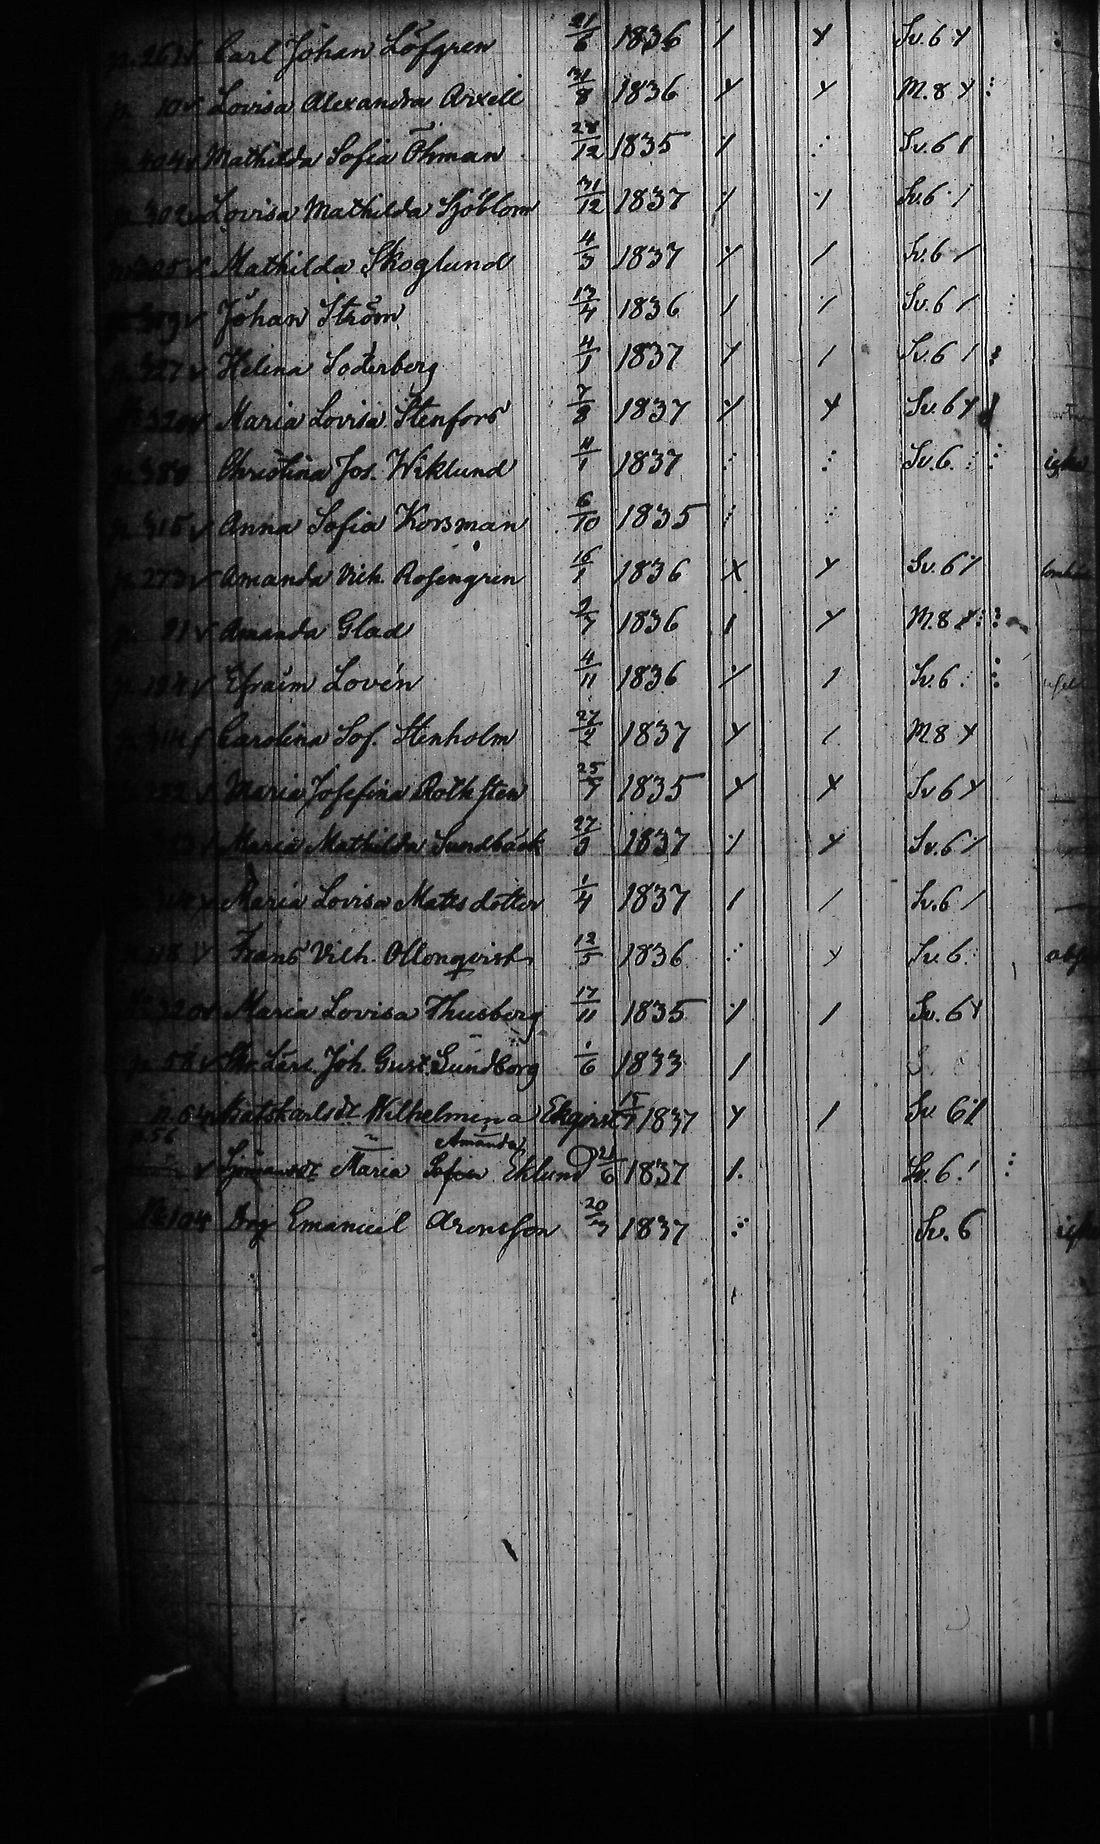 p. 263 Carl Johan Löfgren 21/6 1836 Sv. 6
p. 10 Lovisa Alexandra Arxell 31/8 1836 M. 8
p. 404 Mathilda Sofia Öhman 28/12 1835 Sv. 6
p. 302 Lovisa Mathilda Sjöblom 31/12 1837 Sv. 6
Mathilda Skoglund 4/3 1837 Sv. 6
Johan Ström 13/4 1836 Sv. 6
p. 327 Helena Söderberg 1837 Sv. 6
p. 320 Maria Lovisa Stenfors 7/8 1837 Sv. 6
p. 380 Christina Jos. Wiklund 4/1 1837 Sv. 6
p. 315 Anna Sofia Korsman 6/10 1835
p. 273 Amanda Vilh. Rosengren 16/1 1836 Sv. 6
p. 91 Amanda Glad 1836 M. 8
p. 124 Efraim Lovén 4/11 1836 Sv. 6
Carolina Sof. Stenholm 27/2 1837 M. 8
Maria Josefina Rothsten 25/7 1835 Sv 6
Maria Mathilda Sundbäck 27/3 1837 Sv. 6
Maria Lovisa Matts dotter 1/4 1837 Sv. 6
p. 218 Frans Vilh. Ollonqvist 12/5 1836 Sv. 6
320 Maria Lovisa Thusberg 17/11 1835 Sv. 6
p. 58 Joh. Gust. Sundborg 1/6 1833
Wilhelmina Ekqvist 1837 Sv 6
p. 56 Amanda
Maria Sofia Eklund 21/6 1837 Sv. 6
104 Emanuel Aronsson 20/3 1837 Sv. 6